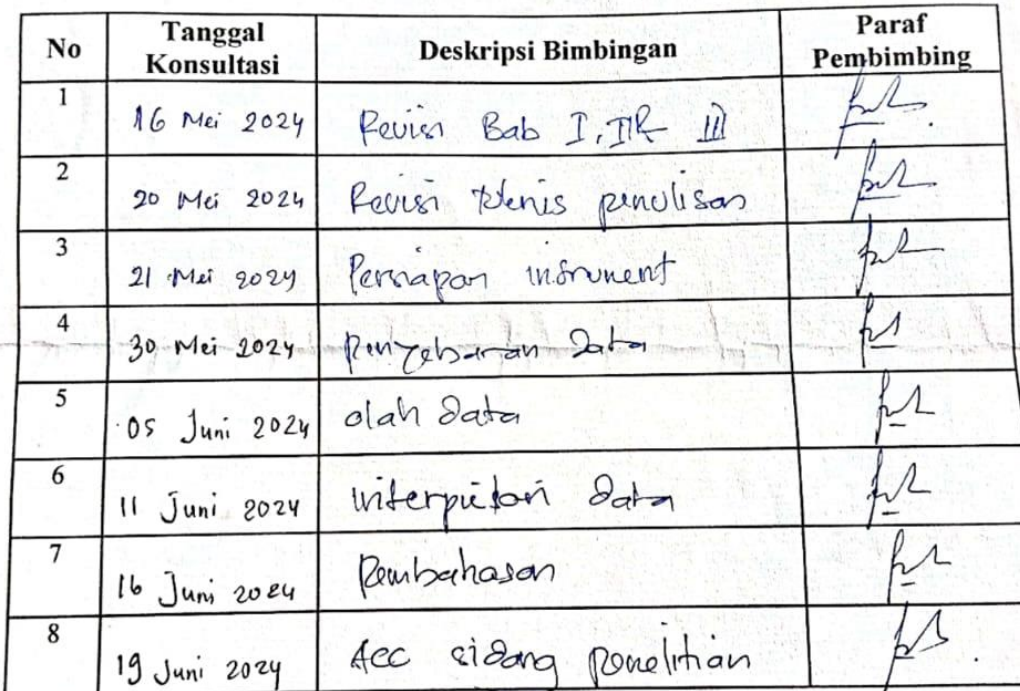 No Tanggal Konsultasi Deskripsi Bimbingan Paraf Pembimbing
1 16 Mei 2024 Revisi Bab I, II & III
2 20 Mei 2024 Revisi teknis penulisan
3 21 Mei 2024 Persiapan instrument
4 30 Mei 2024 penyebaran data
5 05 Juni 2024 olah data
6 11 Juni 2024 interpretasi data
7 16 Juni 2024 Pembahasan
8 19 Juni 2024 Acc sidang penelitian